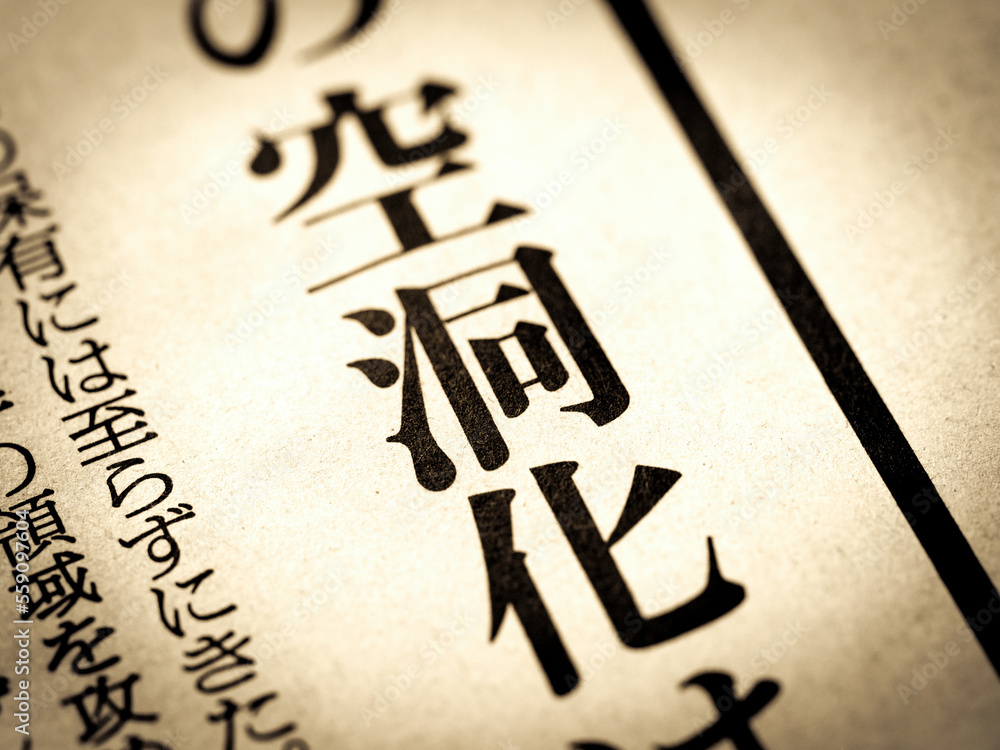 の空洞化は
有には至らずにきた。
つ領域を攻
Adobe Stock | #559097604